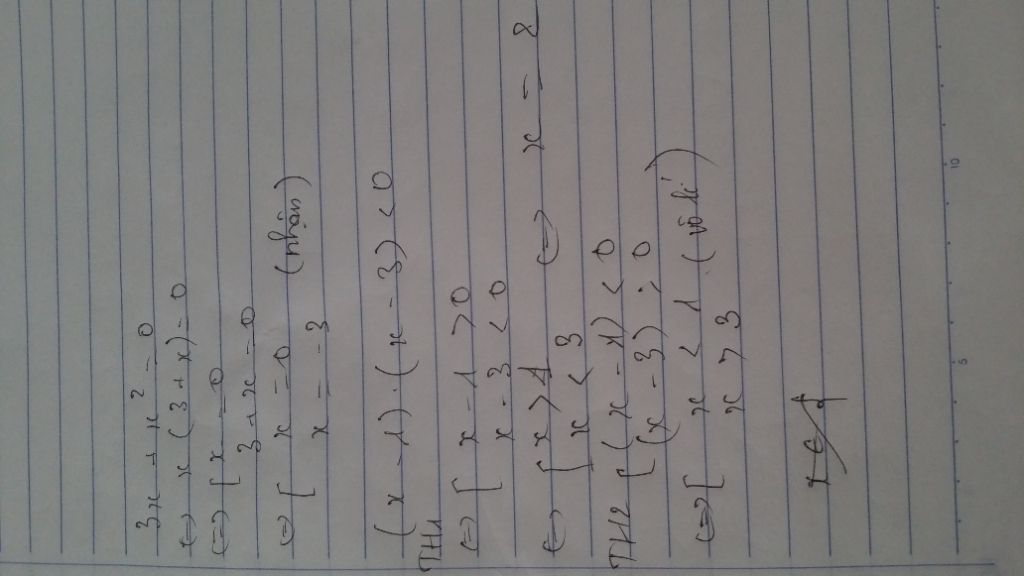 3x + x² = 0
<=> x(3+x) = 0
<=> [ x = 0
3 + x = 0
<=> [ x = 0 (nhận)
x = -3
(x - 1).(x - 3) < 0
TH1
<=> [ x - 1 > 0
x - 3 < 0
<=> [ x > 1 <=> x = 2
x < 3
TH2 [ (x - 1) < 0
(x - 3) > 0
<=> [ x < 1 (vô lí)
x > 3
5
10